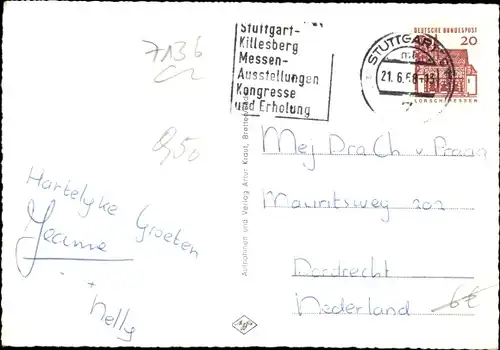 7136
Stuttgart-
Killesberg
Messen-
Ausstellungen
Kongresse
und Erholung
STUTTGART
21.6.68-13
7
DEUTSCHE BUNDESPOST
20
LORSCH/HESSEN
0,50
Hartelyke Groeten
Jeanne
+ Nelly
Aufnahmen und Verlag Artur Krast, Bretten
Mej Dra Ch v Praag
Mauritsweg 202
Dordrecht
Nederland
6€